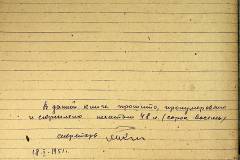 В данной книге прошито, пронумеровано
и скреплено печатью 48 л. (сорок восемь)
секретарь
18/I-1951г.